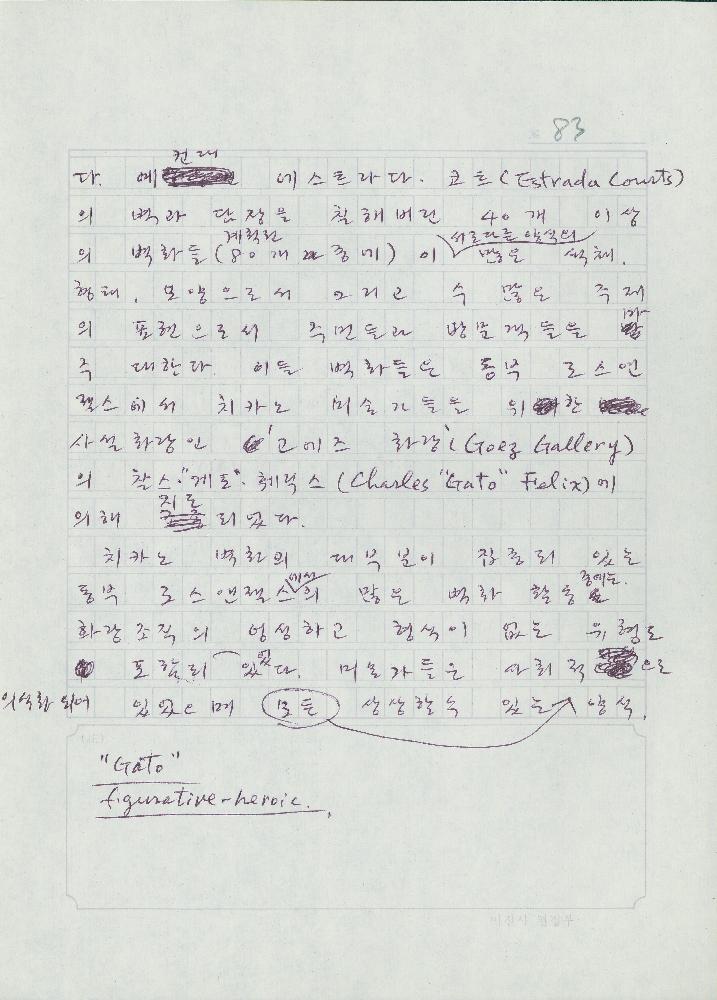 83
다. 예컨대 에스트라다. 코트(Estrada Courts)
의 벽과 담장을 칠해버린 40개 이상
의 벽화들(계획된 80개 중에)이 서로 다른 양식의 많은 색채,
형태, 모양으로서 그리고 수 많은 주제
의 표현으로서 주민들과 방문객들을 마
주 대한다. 이들 벽화들은 동부 로스앤
젤스에서 치카노 미술가들을 위한
사설화랑인 '고에즈 화랑'(Goez Gallery)
의 찰스·"게토"·훼릭스(Charles "Gato" Felix)에
의해 지도되었다.
치카노 벽화의 대부분이 집중되 있는
동부 로스앤젤스에서의 많은 벽화 활동중에는
화랑조직의 엉성하고 형식이 없는 유형도
포함되 있었다. 미술가들은 사회적으로
의식화되어 있었으며 모든 상상할 수 있는 양식,
"Gato"
figurative-heroic.
미진사 편집부